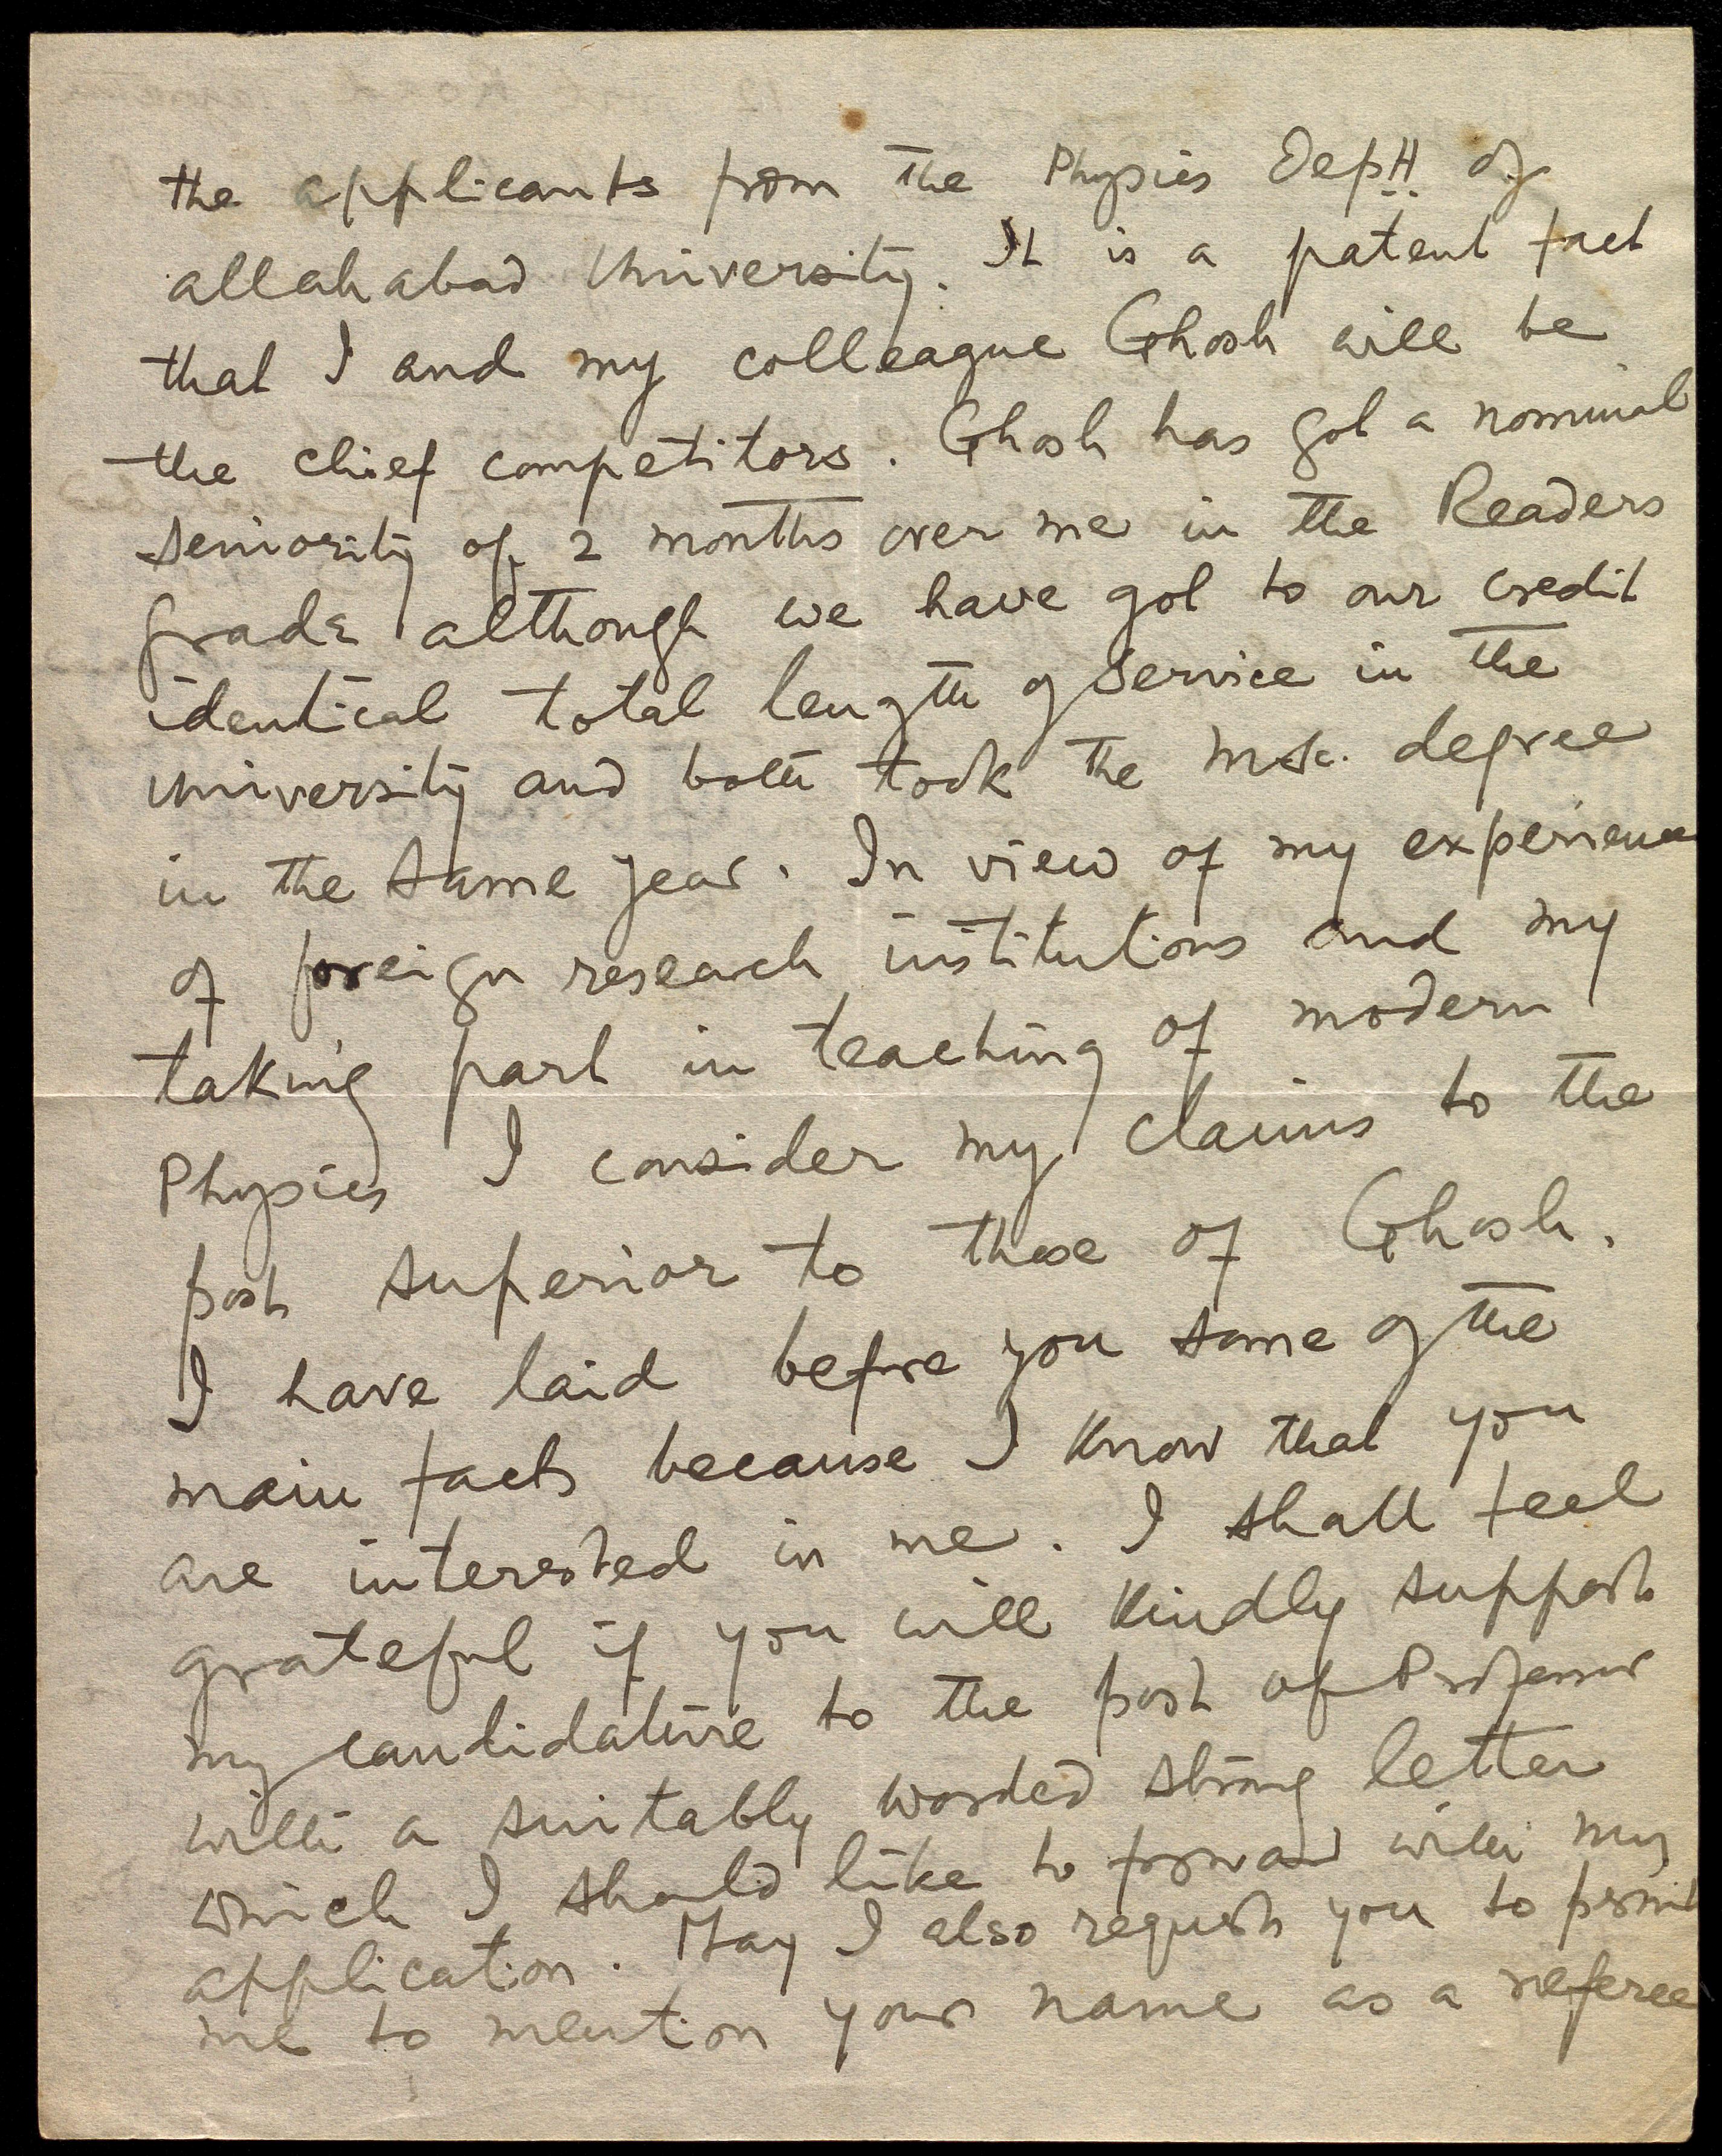 the applicants from the Physics Deptt. of
allahabad University. It is a patent fact
that I and my colleague Ghosh will be
the chief competitors. Ghosh has got a nominal
seniority of 2 months over me in the Readers
grade although we have got to our credit
identical total length of service in the
University and both took the M.Sc. degree
in the same year. In view of my experience
of foreign research institutions and my
taking part in teaching of modern
Physics I consider my claims to the
post superior to those of Ghosh.
I have laid before you some of the
main facts because I know that you
are interested in me. I shall feel
grateful if you will kindly support
my candidature to the post of Professor
with a suitably worded strong letter
which I should like to forward with my
application. May I also request you to permit
me to mention your name as a referee